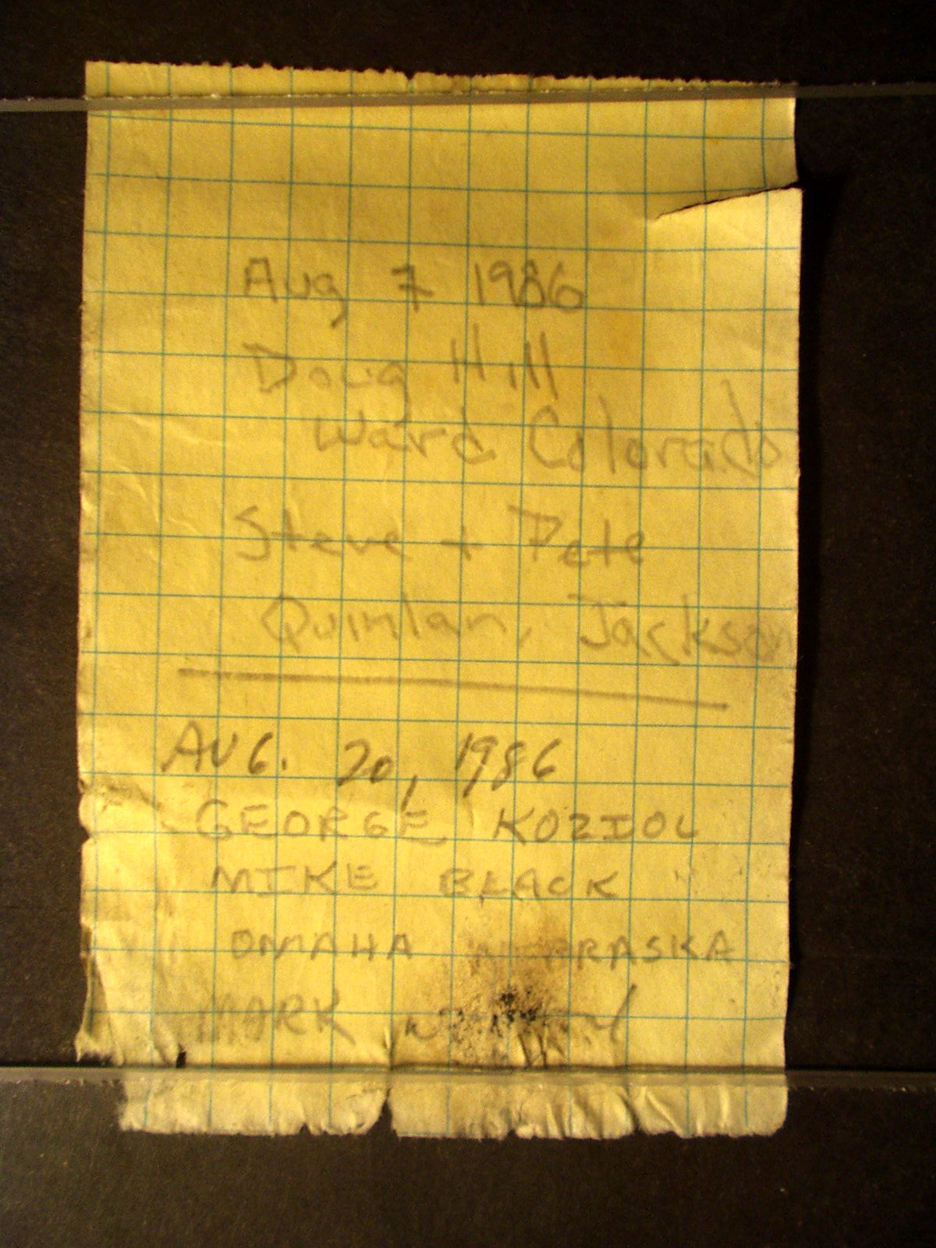 Aug 7 1986
Doug Hill
Ward Colorado
Steve + Pete
Quinlan, Jackson
AUG. 20, 1986
GEORGE KOZIOL
MIKE BLACK
OMAHA NEBRASKA
MARK